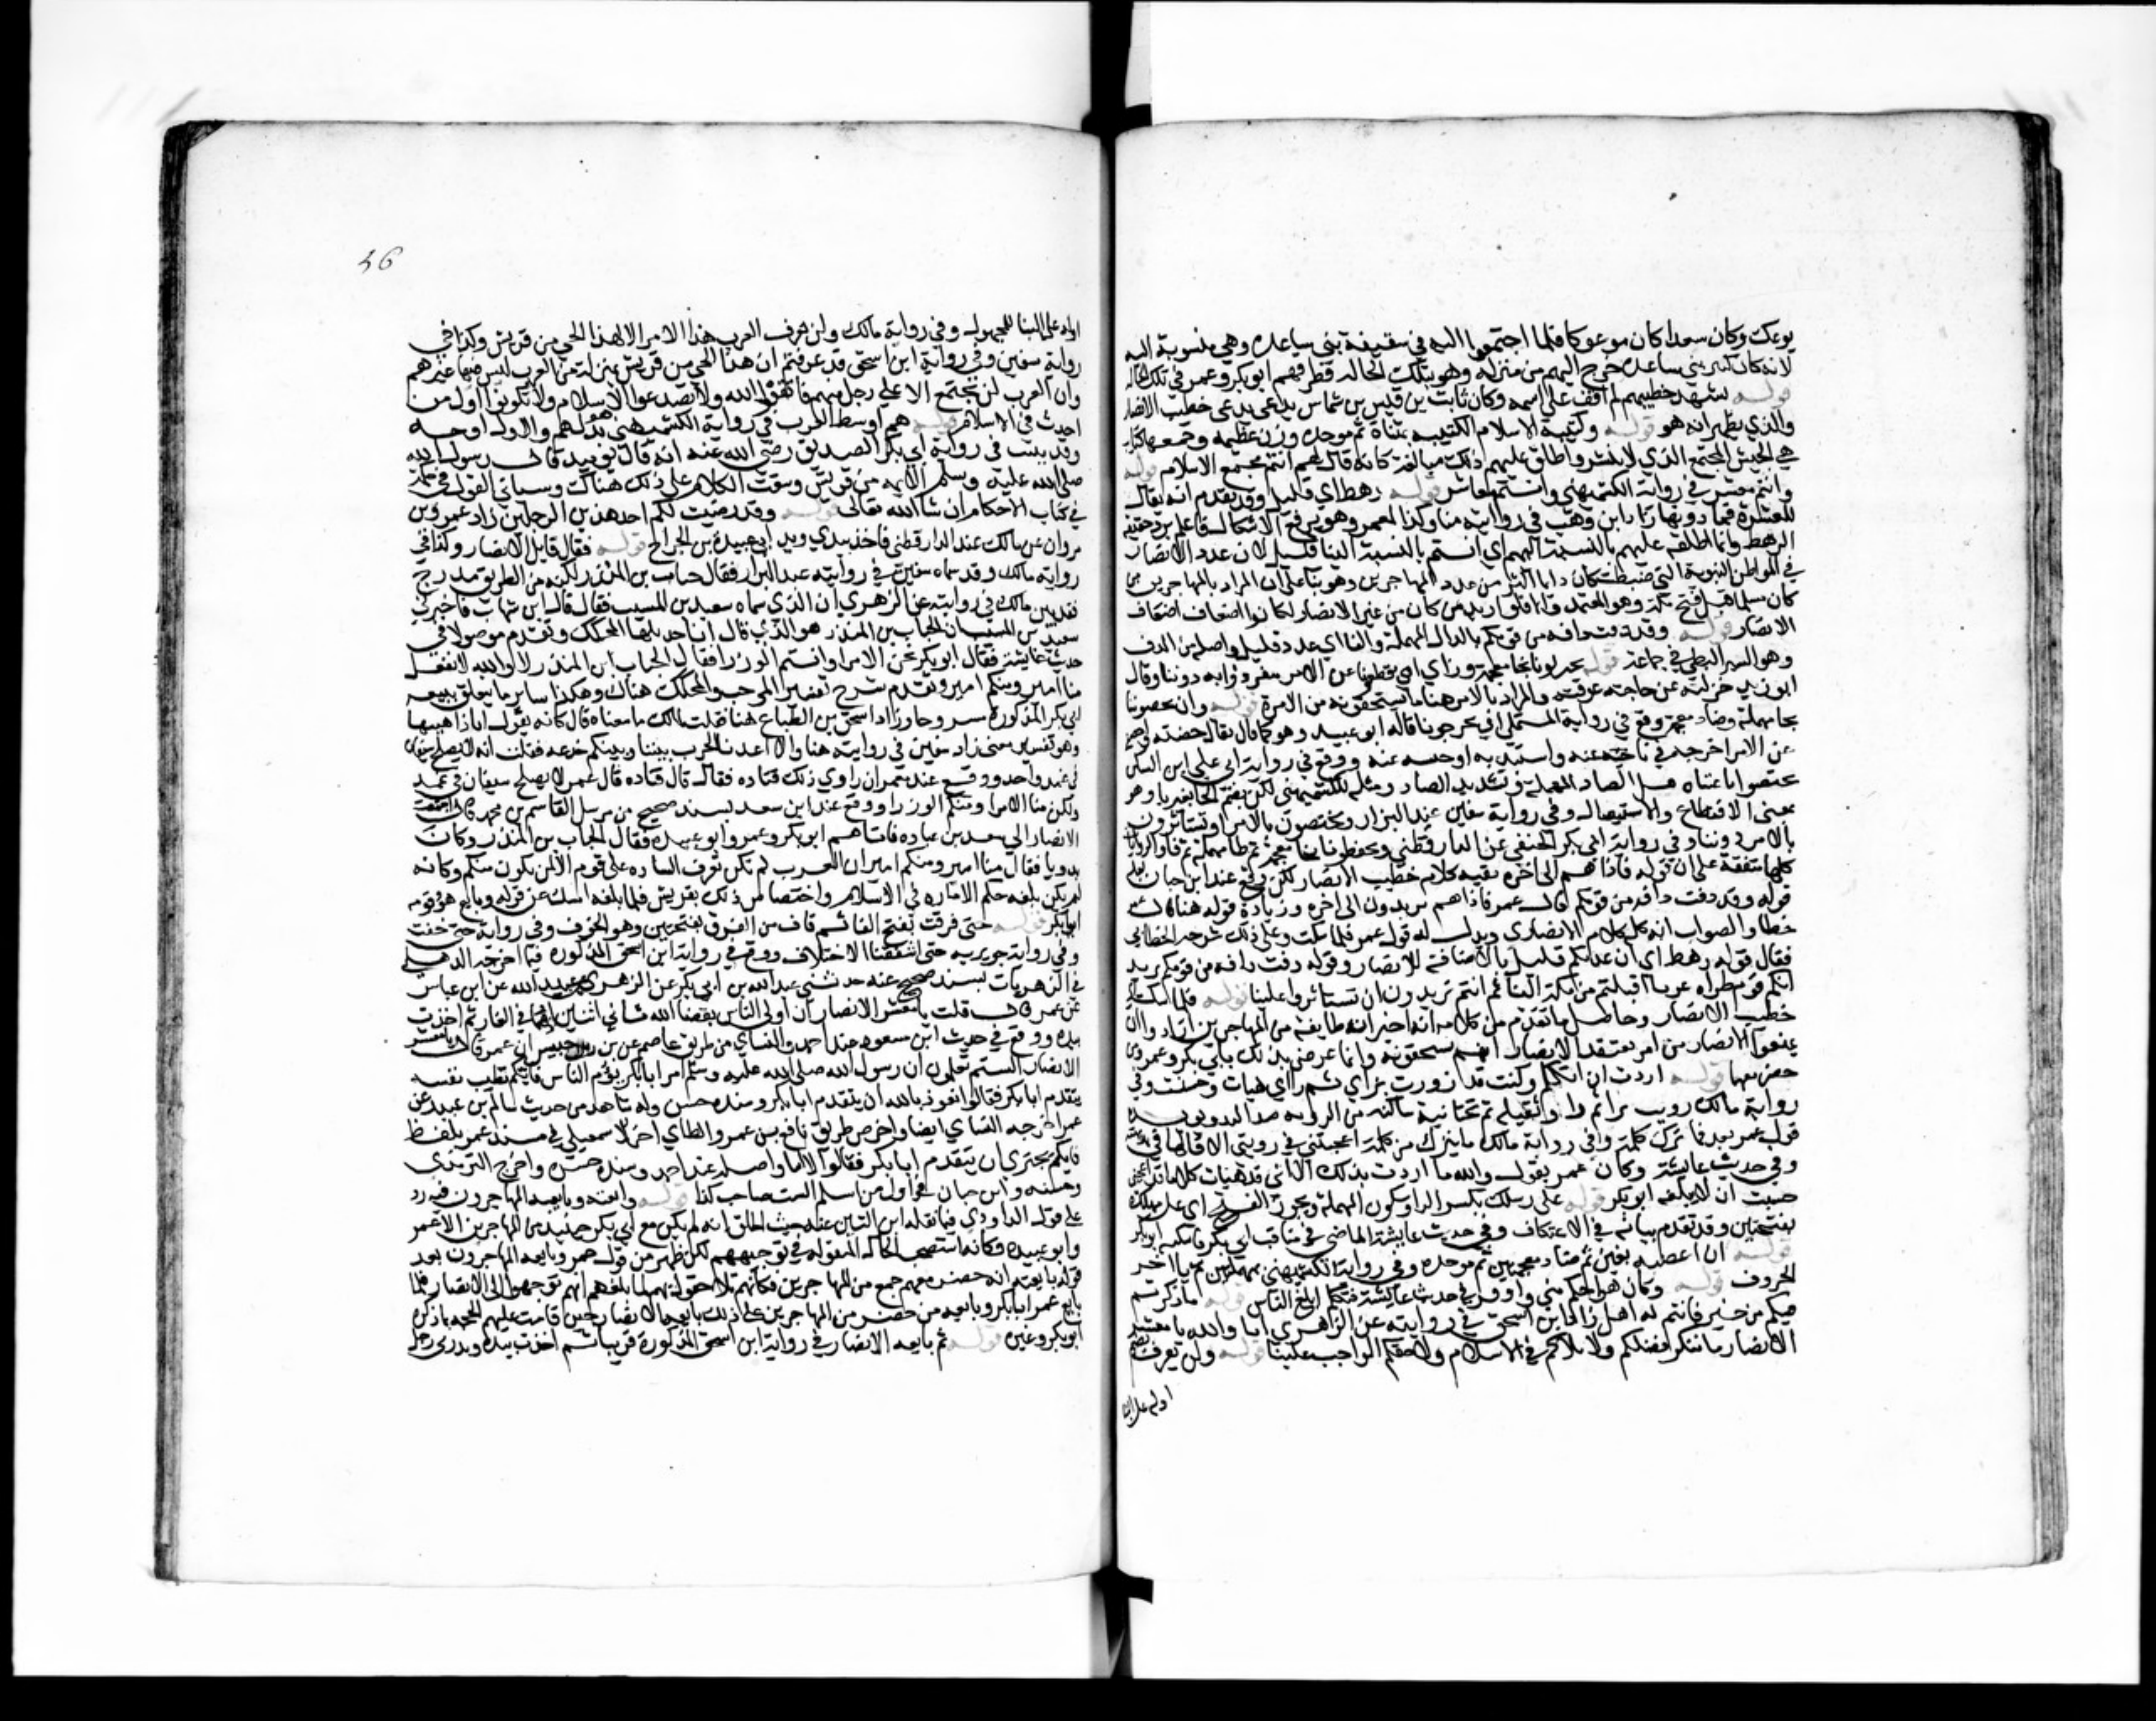 يوعك وكان سعدا كان موعوكا فلما اجتمعوا اليه في سقيفة بني ساعده وهي منسوبة اليه
لانه كان كبير بني ساعده خرج اليهم من منزله وهو بتلك الحاله فطرقهم ابو بكر وعمر في تلك الحاله
قوله تشهد خطيبهم لم اقف على اسمه وكان ثابت بن قيس بن شماس يدعى خطيب الانصار
والذي يظهر انه هو قوله وكتيبة الاسلام الكتيبه بمثناة ثم موحده وزن عظيمه وجمعها كتايب
هي الجيش المجتمع الذي لا ينتشر واطلق عليهم ذلك مبالغة كانه قال لهم انتم مجتمع الاسلام قوله
وانتم معشر في رواية الكشميهني وانتم معاشر قوله رهط اي قليل وقد تقدم انه يقال
للعشرة فما دونها زاد ابن وهب في روايته منا وكذا لمعمر وهو يرفع الاشكال فانه لم يرد حقيقة
الرهط وانما اطلقه عليهم بالنسبة اليهم اي انتم بالنسبة الينا قليل لان عدد الانصار
في المواطن النبوية التي ضبطت كان دايما اكثر من عدد المهاجرين وهو بنا على ان المراد بالمهاجرين من
كان مسلما قبل فتح مكة وهو المعتمد والا فلو اريد من كان من غير الانصار لكانوا اضعاف اضعاف
الانصار قوله وقد دفت دافه من قومكم بالدال المهملة والفا اي عدد قليل واصله من الدف
وهو السير البطي في جماعة قوله يختزلونا بخا معجمة وزاي اي يقطعونا عن الامر وينفردوا به دوننا وقال
ابو زيد خزلته عن حاجته عوقته والمراد بالامر هنا ما يستحقونه من الامرة قوله وان يحضنونا
بحا مهملة وضاد معجمة ووقع في رواية المستملي اي يخرجونا قاله ابو عبيد وهو كما قال يقال حضنه واحتضنه
عن الامر اخرجه في ناحيه عنه واستبد به او حبسه عنه ووقع في رواية ابي علي ابن السكن
يحتصونا بمثناه قبل الصاد المهملة وتشديد الصاد ومثله للكشميهني لكن بضم الخا بغير تا وهو
بمعنى الاقتطاع والاستيصال وفي رواية سفين عند البزار ويختصون بالامر او يستاثرون
بالامر دوننا وفي رواية ابي بكر الحنفي عن الدارقطني ويخطفونا بخا معجمة ثم طا مهملة ثم فا والروايات
كلها متفقة على ان قوله فاذا هم الى اخره بقيه كلام خطيب الانصار لكن وقع عند ابن ماجه بعد
قوله وقد دفت دافه من قومكم قال عمر فاذا هم يريدون الى اخره وزيادة قوله هنا قال عمر
خطا والصواب انه كله كلام الانصاري ويدل له قول عمر فلما سكت وعلى ذلك شرحه الخطابي
فقال قوله رهط اي ان عددكم قليل بالاضافة للانصار وقوله دفت دافه من قومكم يريد
انكم قوم طراه غربا اقبلتم من مكة الينا ثم انتم تريدون ان تستاثروا علينا قوله فلما سكت اي
خطيب الانصار وحاصل ما تقدم من كلامه انه اخبر انه طايفة من المهاجرين ارادوا ان
يمنعوا الانصار من امر يعتقد الانصار انهم يستحقونه وانما عرض بذلك بابي بكر وعمر ومن
حضر معهما قوله اردت ان اتكلم وكنت قد زورت بزاي ثم را اي هيات وحسنت وفي
رواية مالك رويت برا ثم واو ثقيله ثم تحتانية ساكنه من الرويه ضد البديهه
قول عمر بعد فما ترك كلمة وفي رواية مالك ما يترك من كلمة اعجبتني في رويتي الا قالها في بديهته
وفي حديث عايشة وكان عمر يقول والله ما اردت بذلك الا اني قد هيات كلاما قد اعجبني
خشيت ان لا يبلغه ابو بكر قوله على رسلك بكسر الرا وسكون المهملة ويجوز الفتح اي على مهلك
بفتحتين وقد تقدم بيانه في الاعتكاف وفي حديث عايشة الماضي في مناقب ابي بكر فاسكته ابو بكر
قوله ان اغضبه بغين ثم ضاد معجمتين ثم موحده وفي رواية الكشميهني بمهملتين ثم يا اخر
الحروف قوله وكان هو احلم مني واوقر في حديث عايشة فتكلم ابلغ الناس قوله ما ذكرتم
فيكم من خير فانتم له اهل زاد ابن اسحق في روايته عن الزهري انا والله يا معشر
الانصار ما ننكر فضلكم ولا بلاكم في الاسلام ولا حقكم الواجب علينا قوله ولن يعرف بضم
اوله على البنا
46
اوله على البنا للمجهول وفي رواية مالك ولن تعرف العرب هذا الامر الا لهذا الحي من قريش وكذا في
رواية سفين وفي رواية ابن اسحق قد عرفتم ان هذا الحي من قريش بمنزلة من العرب ليس فيها غيرهم
وان العرب لن تجتمع الا على رجل منهم فاتقوا الله ولا تصدعوا الاسلام ولا تكونوا اول من
احدث في الاسلام قوله هم اوسط العرب في رواية الكشميهني هو بدل هم والاول اوجه
وقد بينت في رواية ابي بكر الصديق رضي الله عنه انه قال يومئذ قال رسول الله
صلى الله عليه وسلم الايمه من قريش وسقت الكلام على ذلك هناك وسياتي القول في حكمه
في كتاب الاحكام ان شا الله تعالى قوله وقد رضيت لكم احد هذين الرجلين زاد عمرو بن
مروان عن مالك عند الدارقطني فاخذ بيدي ويد ابي عبيدة بن الجراح قوله فقال قايل الانصار وكذا في
رواية مالك وقد سماه سفين في روايته عند البزار فقال حباب بن المنذر لكنه من الطريق مدرج
فقد بين مالك في روايته عن الزهري ان الذي سماه سعيد بن المسيب فقال قال ابن شهاب فاخبرني
سعيد بن المسيب ان الحباب بن المنذر هو الذي قال انا جذيلها المحكك وتقدم موصولا في
حديث عايشة فقال ابو بكر نحن الامرا وانتم الوزرا فقال الحباب بن المنذر لا والله لا نفعل
منا امير ومنكم امير وتقدم شرح تفسير المرجب والمحكك هناك وهكذا ساير ما يتعلق ببيعه
ابي بكر المذكورة وزاد اسحق بن الطباع هنا فقلت لمالك ما معناه قال كانه يقول انا داهيتها
وهو تفسير معنى زاد سفين في روايته هنا والا اعدنا الحرب بيننا وبينكم خدعه فقلت انه لا يصلح سيفان
في غمد واحد ووقع عند معمر ان راوي ذلك قتاده فقال قال قتاده قال عمر لا يصلح سيفان في غمد
ولكن منا الامرا ومنكم الوزرا ووقع عند ابن سعد بسند صحيح من مرسل القاسم بن محمد قال اجتمعت
الانصار الى سعد بن عباده فاتاهم ابو بكر وعمر وابو عبيده فقال الحباب بن المنذر وكان
بدريا فقال منا امير ومنكم امير ان العرب لم تكن تعرف السياده على قوم الا لمن يكون منكم وكانه
لم يكن بلغه حكم الاماره في الاسلام واختصاص ذلك بقريش فلما بلغه امسك عن قوله وبايع هو وقومه
ابا بكر قوله حتى فرقت بفتح الفا ثم قاف من الفرق بفتحتين وهو الخوف وفي رواية حتى خفت
وفي رواية جويريه حتى اشفقنا الاختلاف ووقع في رواية ابن اسحق المذكوره فيما اخرجه الذهلي
في الزهريات بسند صحيح عنه حدثني عبد الله بن ابي بكر عن الزهري عن عبيد الله عن ابن عباس
عن عمر قال قلت يا معشر الانصار ان اولى الناس بقضا الله ثاني اثنين اذ هما في الغار ثم اخذت
بيده ووقع في حديث ابن مسعود عند احمد والنساي من طريق عاصم عن زر بن حبيش ان عمر قال يا معشر
الانصار الستم تعلمون ان رسول الله صلى الله عليه وسلم امر ابا بكر يؤم الناس فايكم تطيب نفسه
يتقدم ابا بكر فقالوا نعوذ بالله ان يتقدم ابا بكر وسنده حسن وله شاهد من حديث سالم بن عبيد عن
عمر اخرجه النساي ايضا واخر من طريق نافع بن عمر والطاي اخر الاسمعيلي في مسند عمر بلفظ
فايكم يجتري ان يتقدم ابا بكر فقالوا لا اينا واصله عند احمد وسنده حسن واخرج الترمذي
وحسنه وابن حبان اول من اسلم الست صاحب كذا قوله وبايعته وبايعه المهاجرون فيه رد
على قول الداودي فيما نقله ابن التين عنه حيث اطلق انه لم يكن مع ابي بكر حينئذ من المهاجرين الا عمر
وابو عبيده وكانه استصحب الحاله المنقوله في توجيههم لكن ظهر من قول عمر وبايعه المهاجرون بعد
قوله بايعته انه حضر معهم جمع من المهاجرين فكانهم تلاحقوا بهم لما بلغهم انهم توجهوا الى الانصار فلما
بايع عمر ابا بكر وبايعه من حضر من المهاجرين على ذلك بايعه الانصار حين قامت عليهم الحجه بما ذكره
ابو بكر وغيره قوله ثم بايعه الانصار في رواية ابن اسحق المذكورة قريبا ثم اخذت بيده وبدرني رجل